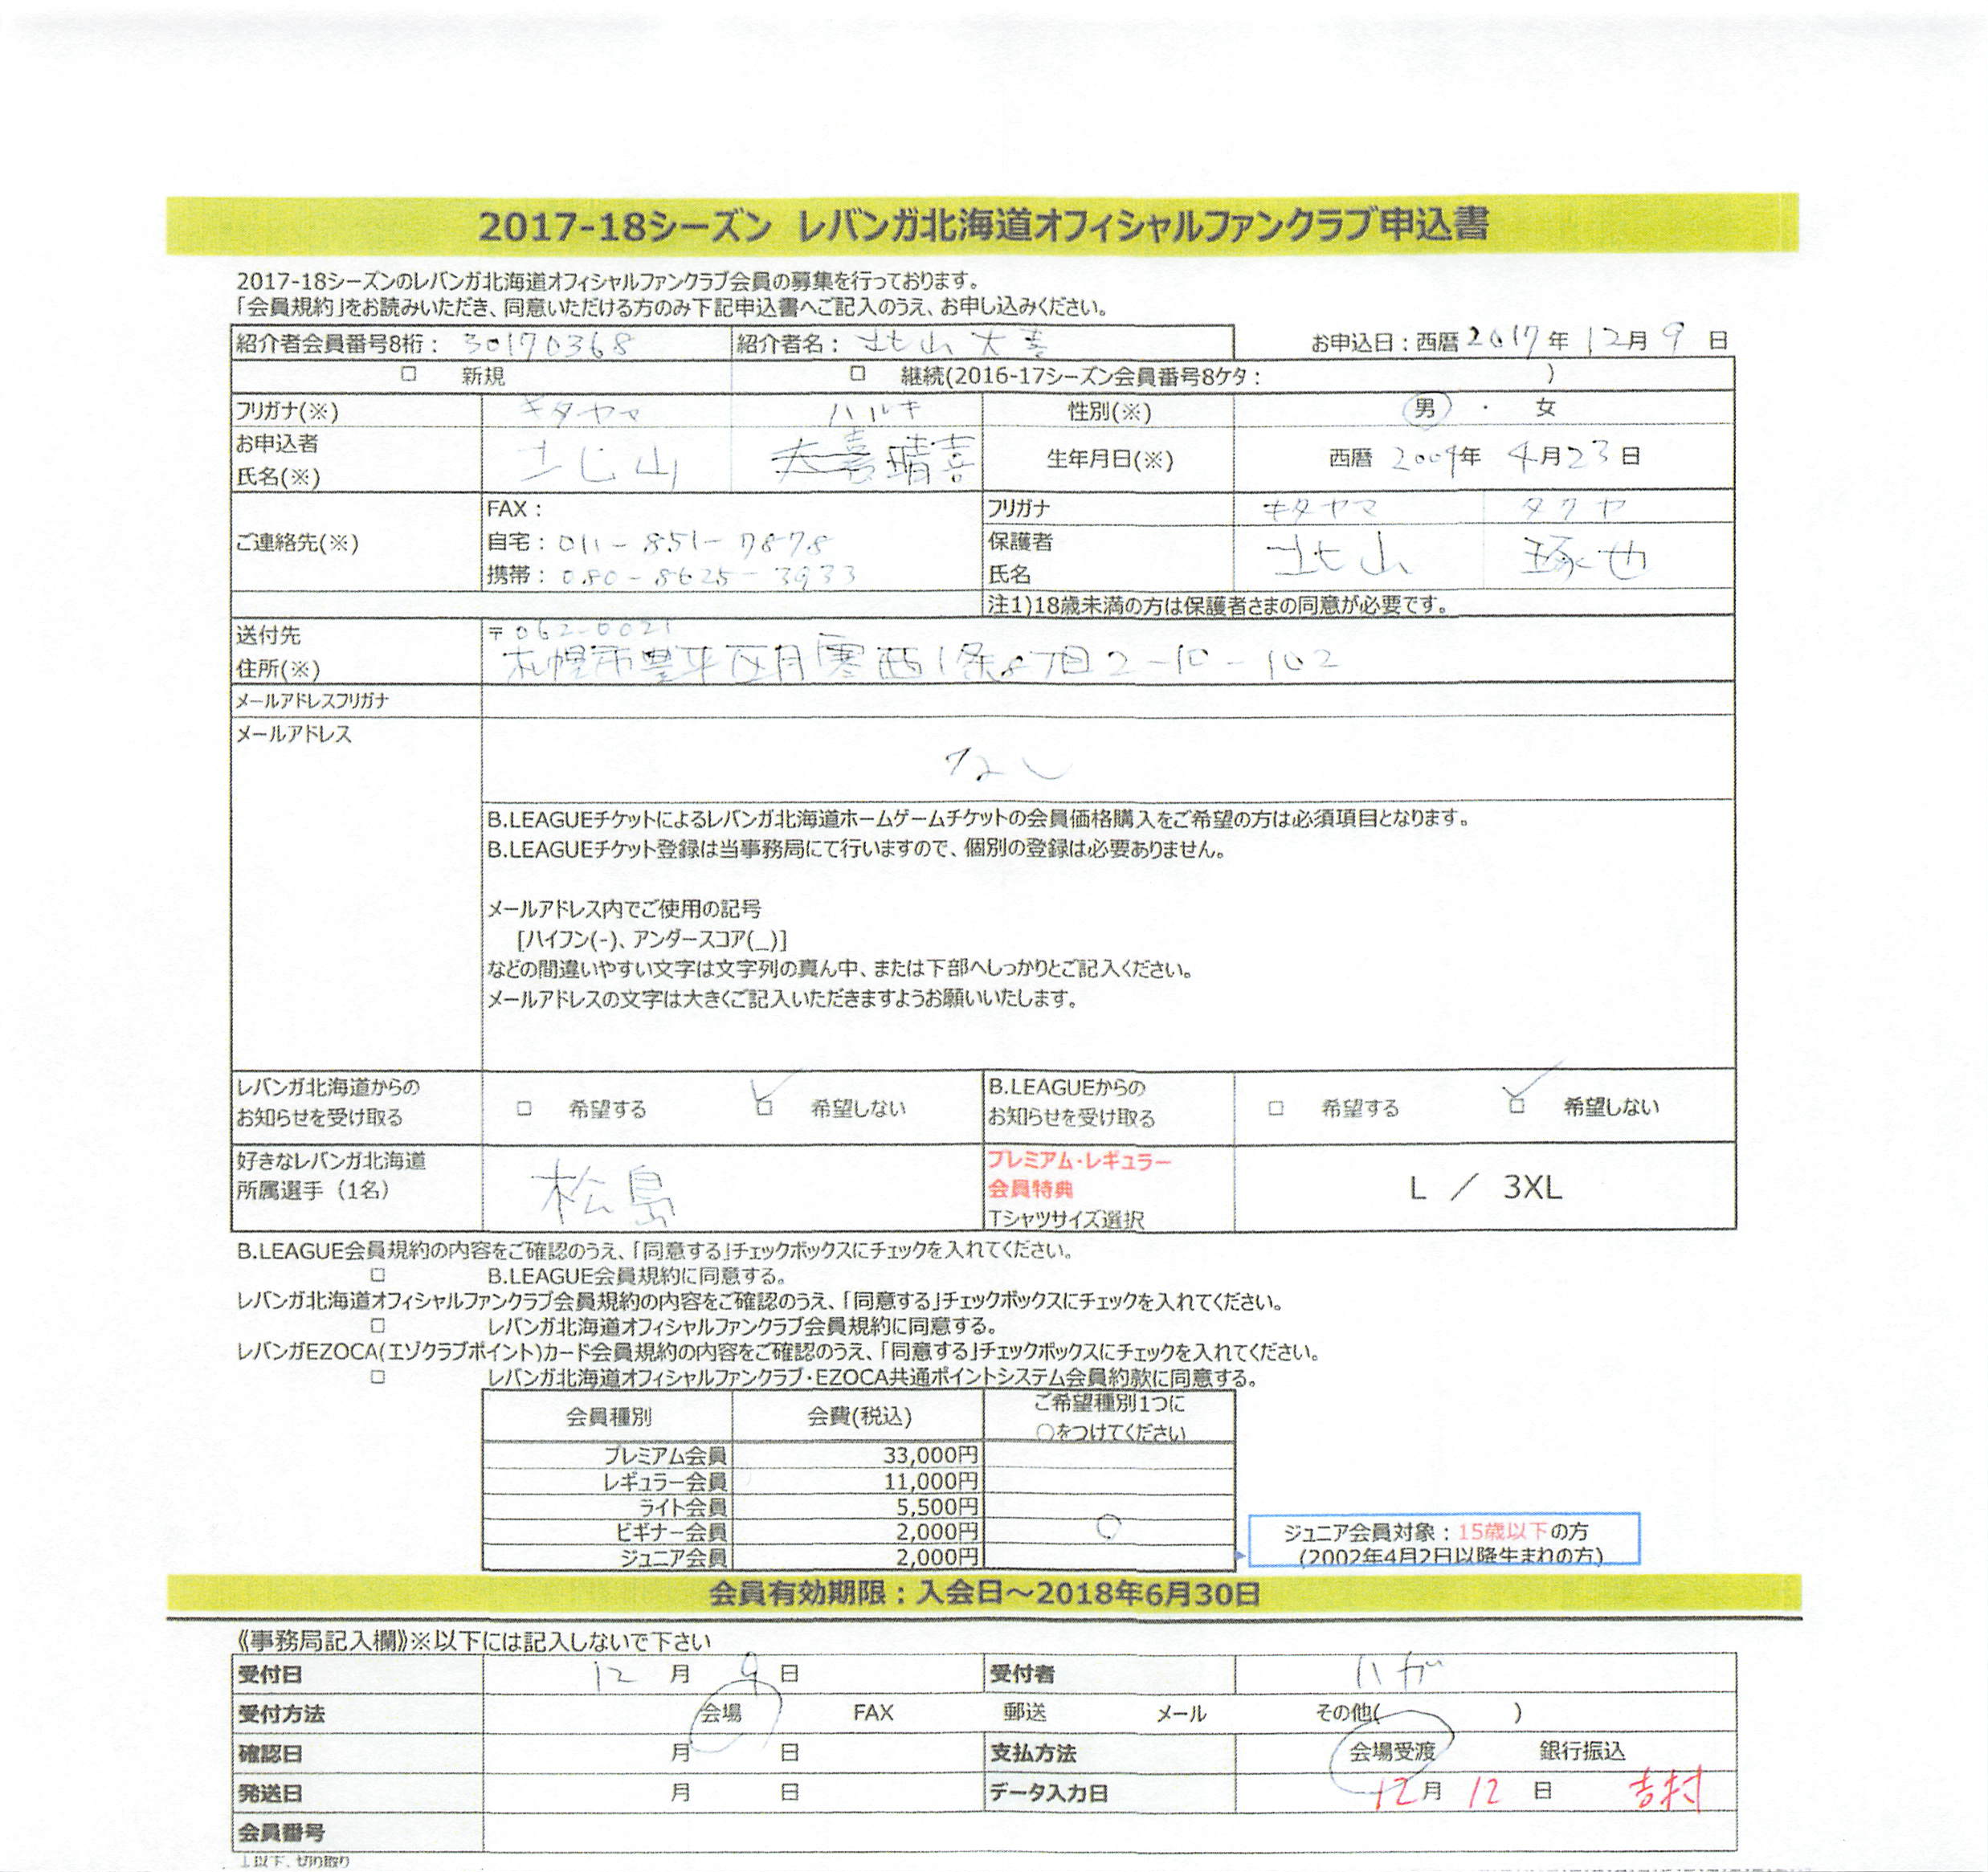 2017-18シーズン レバンガ北海道オフィシャルファンクラブ申込書
2017-18シーズンのレバンガ北海道オフィシャルファンクラブ会員の募集を行っております。
「会員規約」をお読みいただき、同意いただける方のみ下記申込書へご記入のうえ、お申し込みください。
紹介者会員番号8桁： 30170368 紹介者名： 北山 大喜 お申込日：西暦 2017 年 12 月 9 日
□ 新規 □ 継続(2016-17シーズン会員番号8ケタ： )
フリガナ(※) キタヤマ ハルキ 性別(※) 男 ・ 女
お申込者
氏名(※) 北山 大喜 晴喜 生年月日(※) 西暦 2009年 4月23日
ご連絡先(※) FAX：
自宅：011-851-7878
携帯：080-8625-3933
フリガナ キタヤマ タクヤ
保護者
氏名 北山 琢也
注1)18歳未満の方は保護者さまの同意が必要です。
送付先
住所(※) 〒062-0021
札幌市豊平区月寒西1条8丁目2-10-102
メールアドレスフリガナ
メールアドレス
なし
B.LEAGUEチケットによるレバンガ北海道ホームゲームチケットの会員価格購入をご希望の方は必須項目となります。
B.LEAGUEチケット登録は当事務局にて行いますので、個別の登録は必要ありません。
メールアドレス内でご使用の記号
[ハイフン(-)、アンダースコア(_)]
などの間違いやすい文字は文字列の真ん中、または下部へしっかりとご記入ください。
メールアドレスの文字は大きくご記入いただきますようお願いいたします。
レバンガ北海道からの
お知らせを受け取る □ 希望する ☑ 希望しない
B.LEAGUEからの
お知らせを受け取る □ 希望する ☑ 希望しない
好きなレバンガ北海道
所属選手（1名） 松島
プレミアム・レギュラー
会員特典
Tシャツサイズ選択 L ／ 3XL
B.LEAGUE会員規約の内容をご確認のうえ、「同意する」チェックボックスにチェックを入れてください。
□ B.LEAGUE会員規約に同意する。
レバンガ北海道オフィシャルファンクラブ会員規約の内容をご確認のうえ、「同意する」チェックボックスにチェックを入れてください。
□ レバンガ北海道オフィシャルファンクラブ会員規約に同意する。
レバンガEZOCA(エゾクラブポイント)カード会員規約の内容をご確認のうえ、「同意する」チェックボックスにチェックを入れてください。
□ レバンガ北海道オフィシャルファンクラブ・EZOCA共通ポイントシステム会員約款に同意する。
会員種別 会費(税込) ご希望種別1つに
○をつけてください
プレミアム会員 33,000円
レギュラー会員 11,000円
ライト会員 5,500円
ビギナー会員 2,000円 ○
ジュニア会員 2,000円
ジュニア会員対象：15歳以下の方
(2002年4月2日以降生まれの方)
会員有効期限：入会日～2018年6月30日
《事務局記入欄》※以下には記入しないで下さい
受付日 12 月 9 日 受付者 ハガ
受付方法 会場 FAX 郵送 メール その他( )
確認日 月 日 支払方法 会場受渡 銀行振込
発送日 月 日 データ入力日 12月 12 日 吉村
会員番号
⊥以下、切り取り